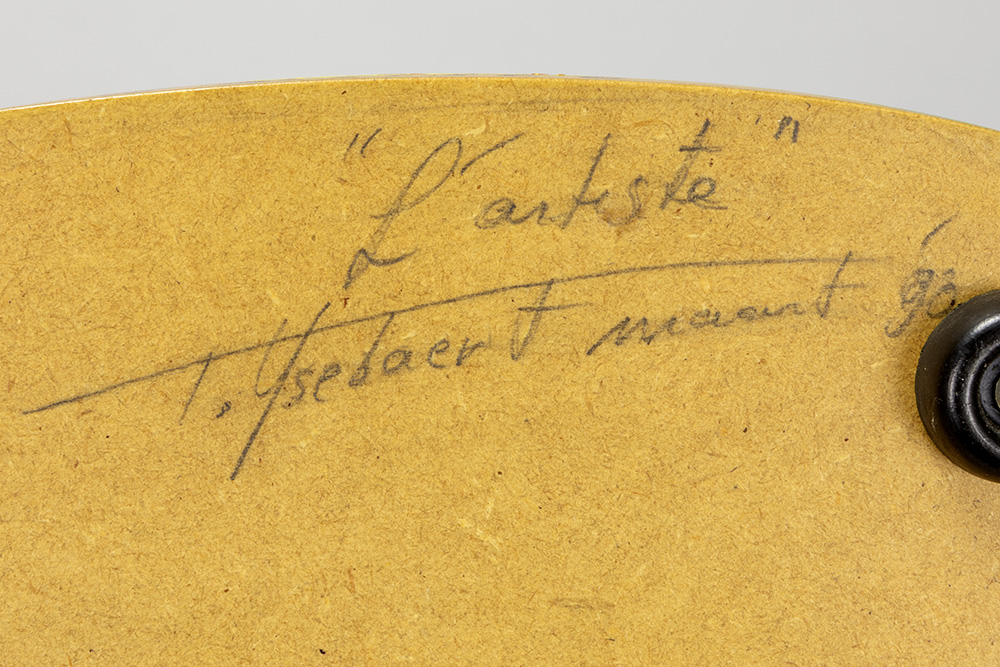 "L'artiste"
T. Ysebaert maart '93